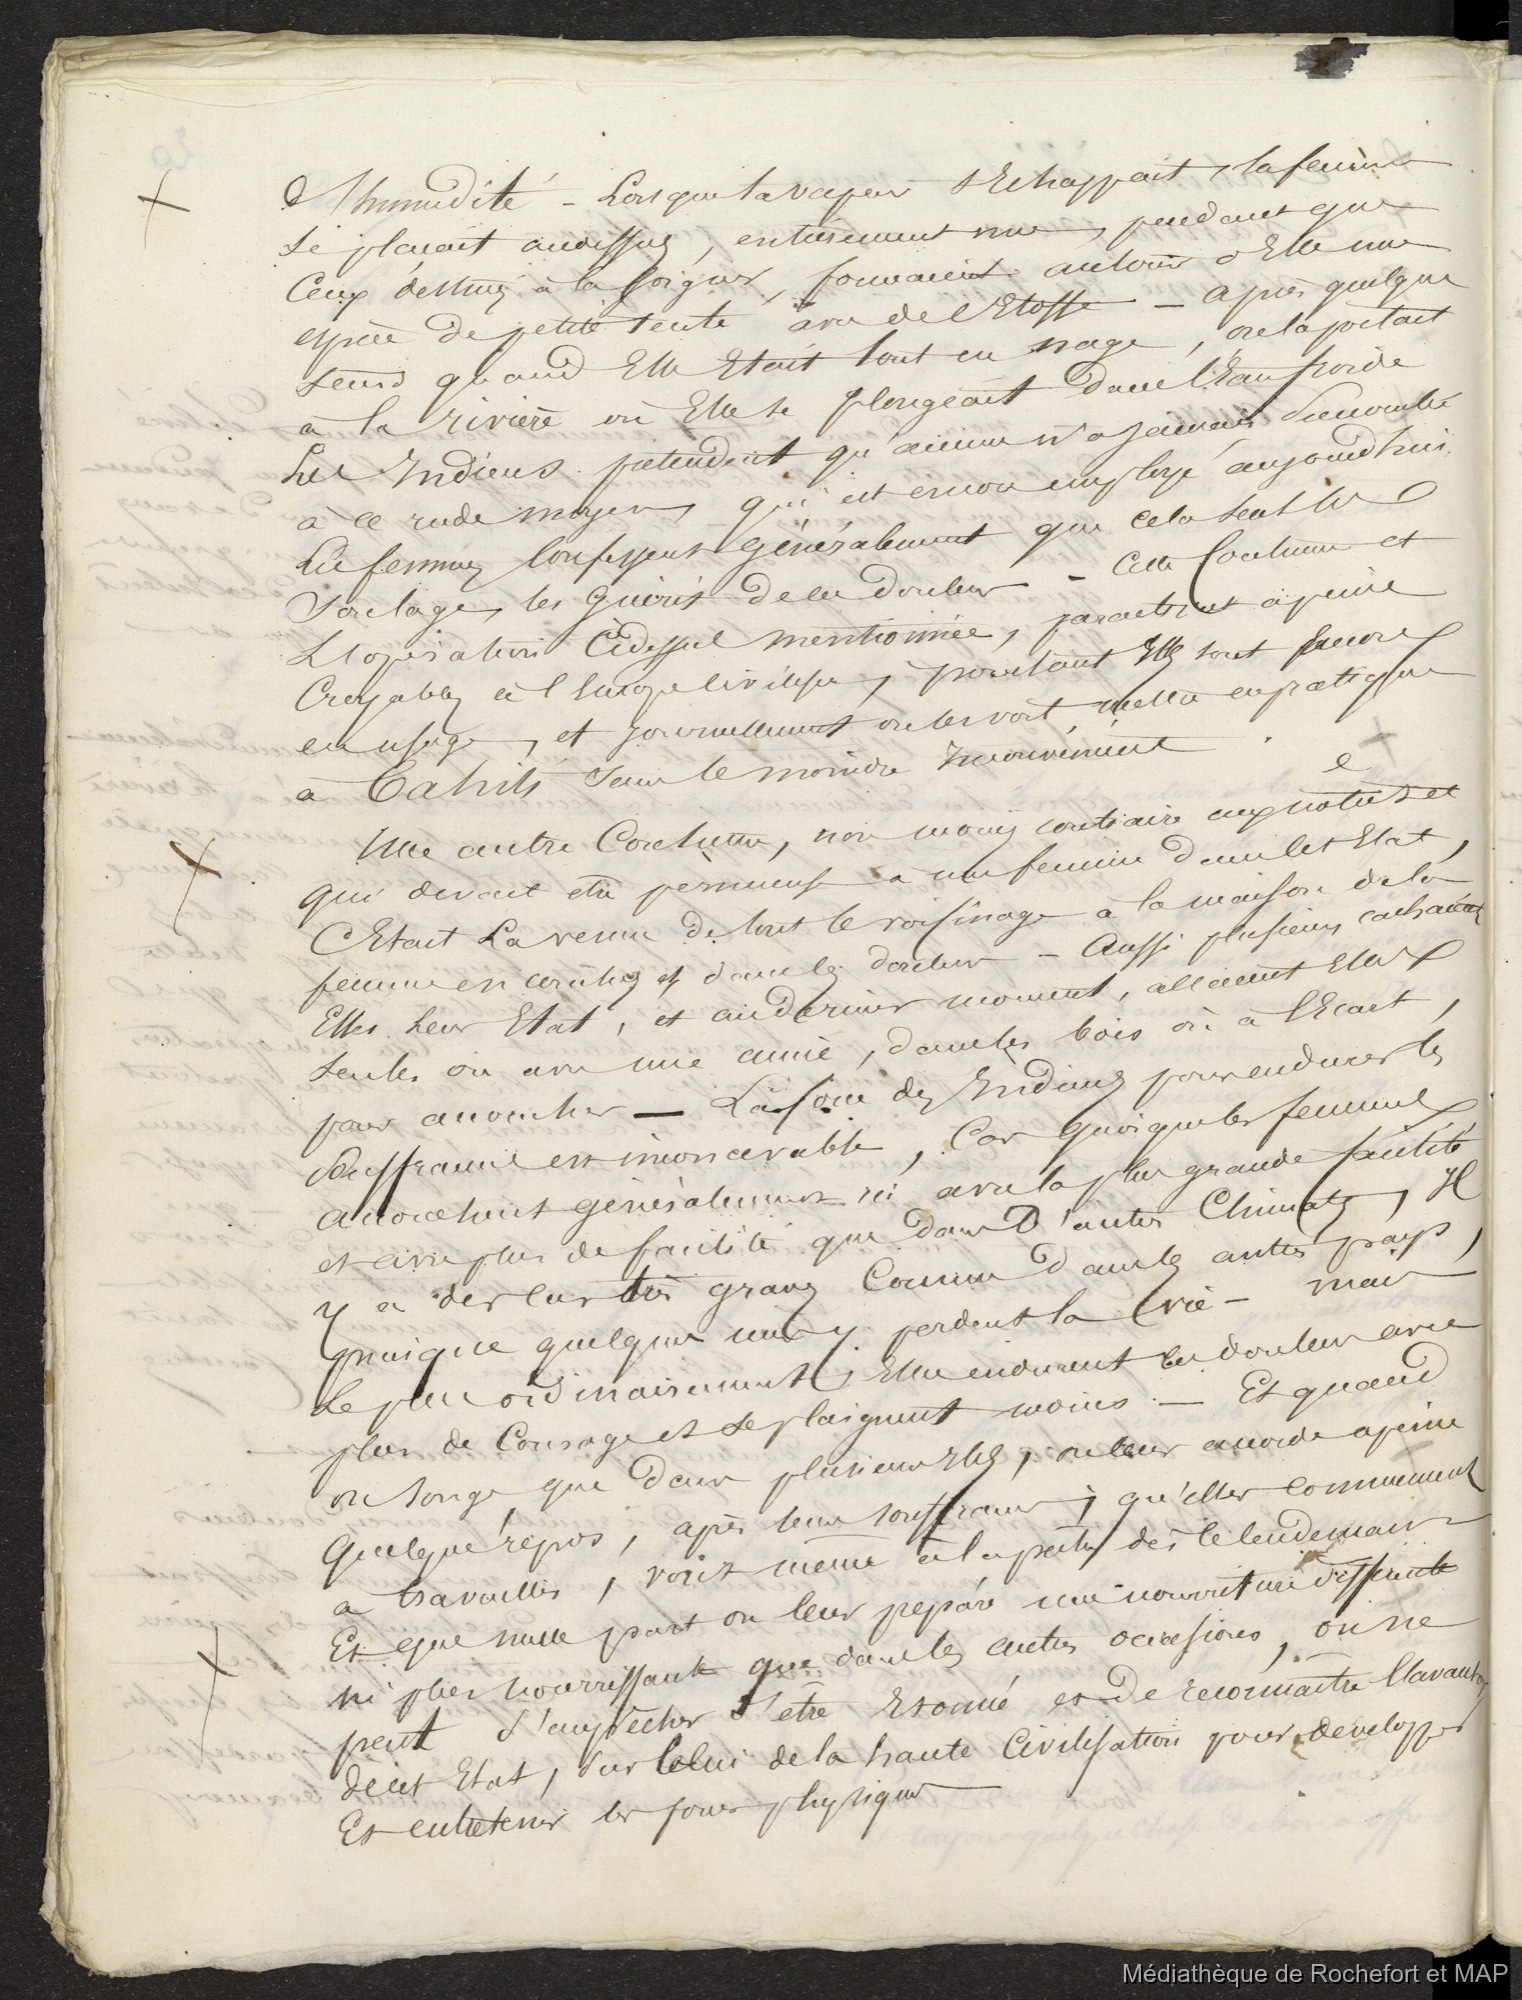 l'humidité - Lorsque la vapeur s'Echappait, la femme
se placait audessus, entierement nue, pendant que
Ceux destinés à la soigner, formaient autour d'Elle une
espèce de petite tente avec de l'Etoffe - après quelque
tems quand Elle Etait tout en nage, on la portait
à la rivière où Elle se plongeait dans l'Eau froide
Les Indiens prétendent qu'aucune n'a jamais succombé
à ce rude moyen, qui est encore employé aujourd'hui.
Les femmes confessent généralement que cela seul les
Soulage, les Guérit de leur douleur - Cette Coutume et
L'opération Cidessus mentionnée, paraîtront à peine
Croyables à l'Europe civilisée, pourtant Elles sont encore
en usage, et journellement on les voit mettre en pratique
à Tahiti sans le moindre inconvénient.
Une autre Coutume, non moins contraire aux notres et
e
qui devait être pernicieuse à une femme dans cet Etat,
C'Etait La venue de tout le voisinage à la maison de la
femme en couches et dans les douleurs - Aussi plusieurs cachaient
Elles leur Etat, et au dernier moment, allaient Elles
seules ou avec une amie, dans les bois où à l'Ecart,
pour accoucher — La force des Indiennes pour endurer les
Souffrances est inconcevable, Car quoique les femmes
accouchent généralement ici avec la plus grande facilité
et avec plus de facilité que dans D'autres Climats, Il
y a des cas très graves Comme dans les autres pays,
puisque quelques unes y perdent la vie - mais
le plus ordinairement, Elles endurent les douleurs avec
plus de Courage et se plaignent moins — Et quand
on songe que dans plusieurs Iles, on leur accorde à peine
Quelque répos, après leurs souffrances, qu'elles commencent
a travailler, voire même à la pêche, dès le lendemain
Et que nulle part on leur prépare une nourriture différente
ni plus nourrissante que dans les autres occasions, on ne
peut s'empêcher d'être Etonné et De reconnaître l'avantage
de cet Etat, sur Celui de la haute Civilisation pour developper
Et entretenir les forces physiques
Médiathèque de Rochefort et MAP